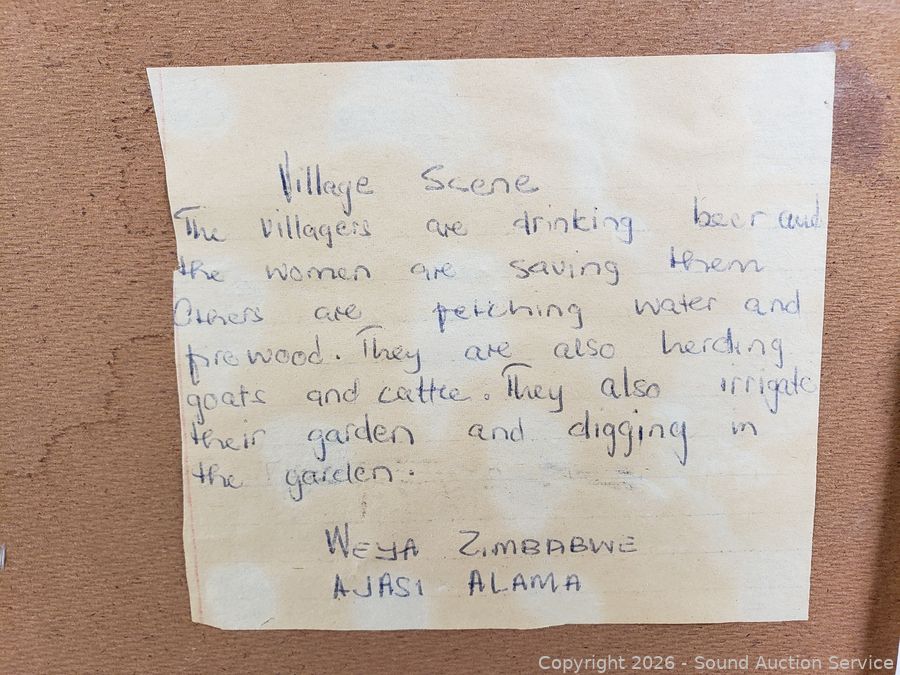 Village Scene
The villagers are drinking beer and
the women are saving them
Others are fetching water and
firewood. They are also herding
goats and cattle. They also irrigate
their garden and digging in
the garden.
WEYA ZIMBABWE
AJASI ALAMA
Copyright 2026 - Sound Auction Service